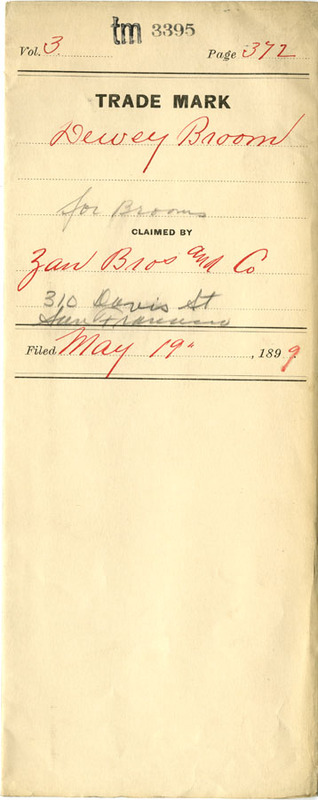 tm 3395
Vol. 3 Page 372
TRADE MARK
Dewey Broom
for Brooms
CLAIMED BY
Zan Bros and Co
310 Davis St
San Francisco
Filed May 19", 1899